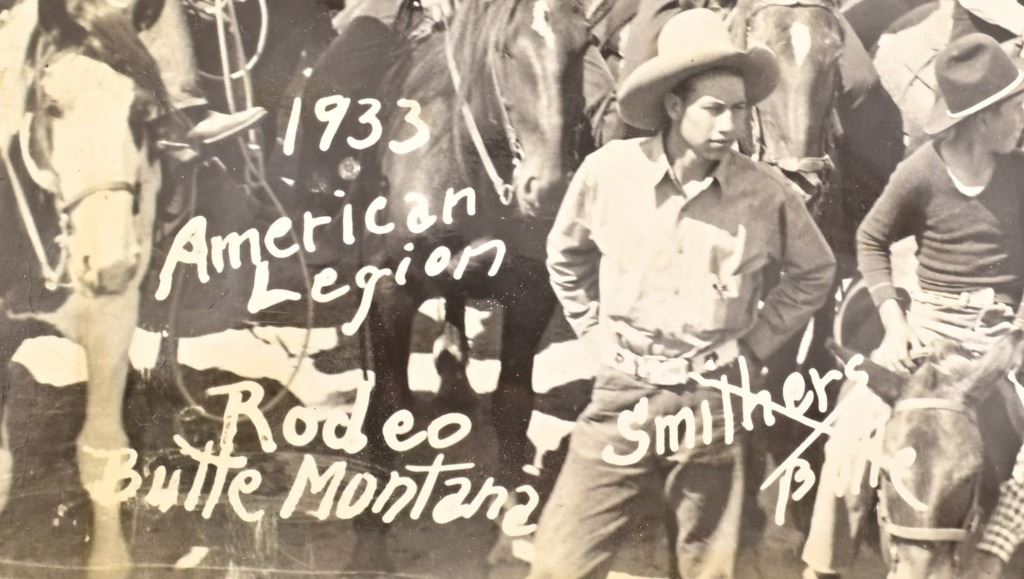 1933
American
Legion
Rodeo
Butte Montana
Smithers
Butte